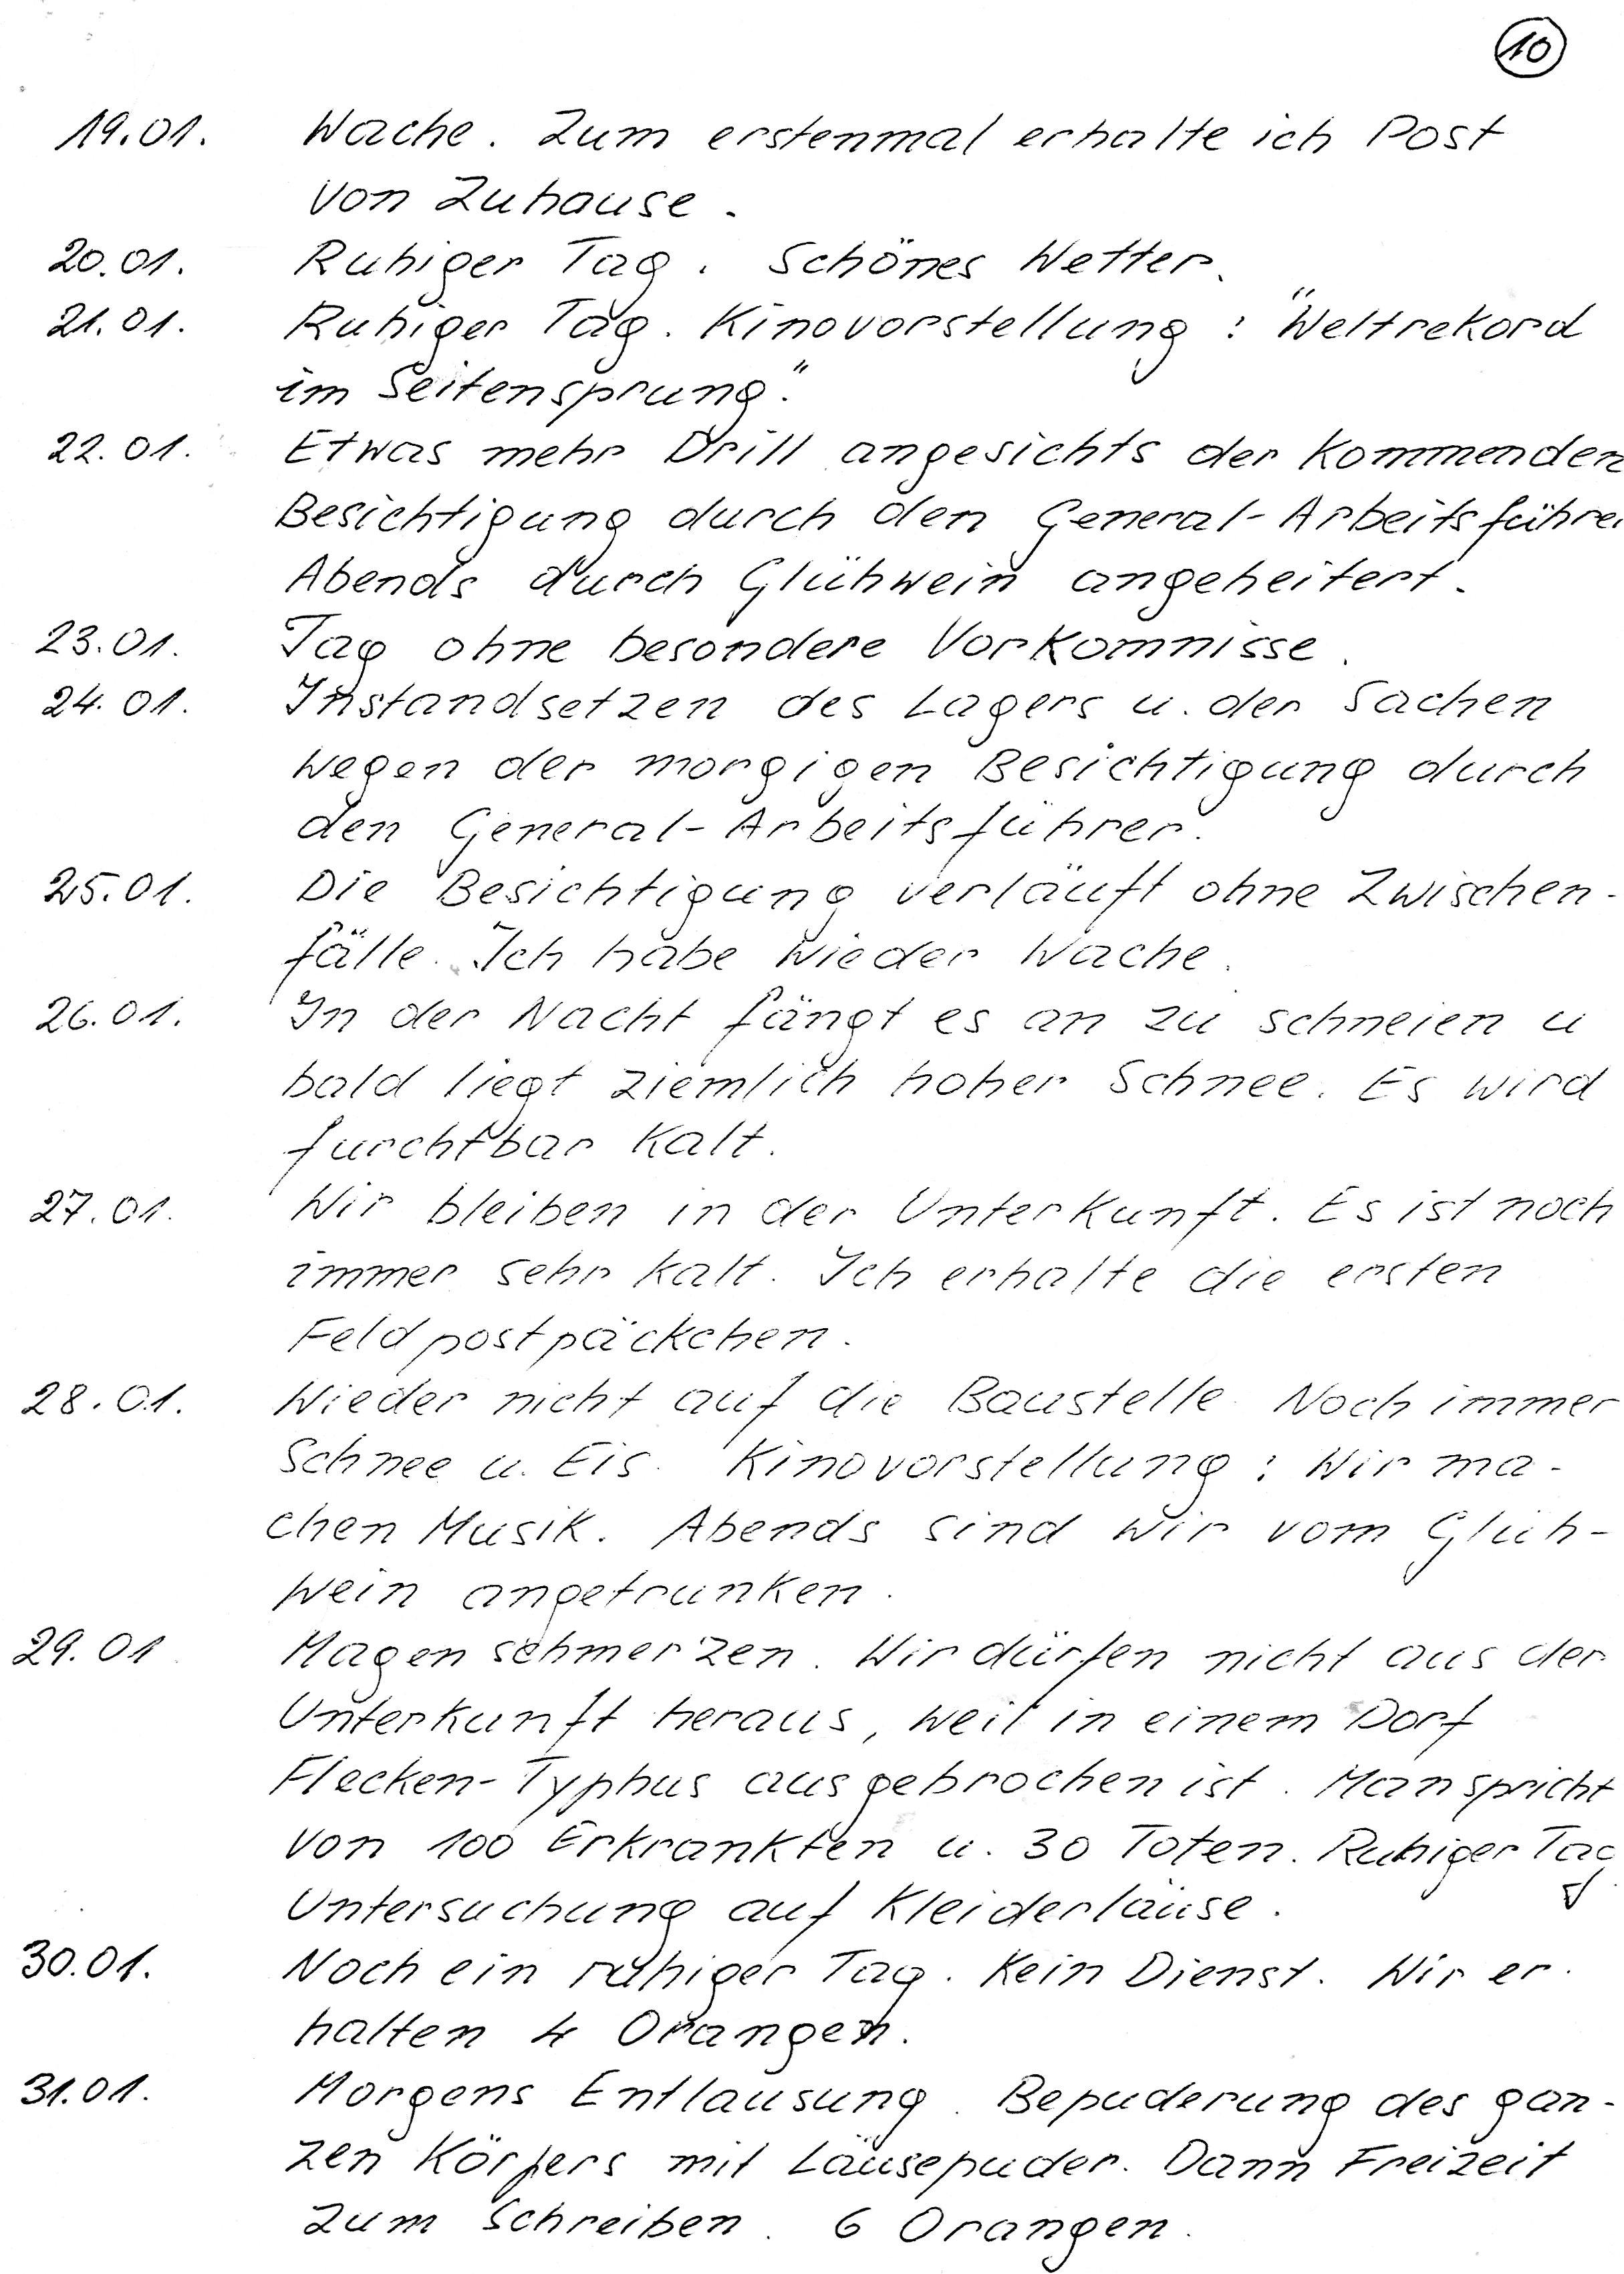 10
19.01. Wache. Zum erstenmal erhalte ich Post
von Zuhause.
20.01. Ruhiger Tag. Schönes Wetter.
21.01. Ruhiger Tag. Kinovorstellung: "Weltrekord
im Seitensprung."
22.01. Etwas mehr Drill angesichts der kommenden
Besichtigung durch den General-Arbeitsführer
Abends durch Glühwein angeheitert.
23.01. Tag ohne besondere Vorkomnisse.
24.01. Instandsetzen des Lagers u. der Sachen
wegen der morgigen Besichtigung durch
den General-Arbeitsführer.
25.01. Die Besichtigung verläuft ohne Zwischen-
fälle. Ich habe wieder Wache.
26.01. In der Nacht fängt es an zu schneien u
bald liegt ziemlich hoher Schnee. Es wird
furchtbar kalt.
27.01. Wir bleiben in der Unterkunft. Es ist noch
immer sehr kalt. Ich erhalte die ersten
Feldpostpäckchen.
28.01. Wieder nicht auf die Baustelle. Noch immer
Schnee u. Eis. Kinovorstellung: Wir ma-
chen Musik. Abends sind wir vom Glüh-
wein angetrunken.
29.01 Magenschmerzen. Wir dürfen nicht aus der
Unterkunft heraus, weil in einem Dorf
Flecken-Typhus ausgebrochen ist. Man spricht
von 100 Erkrankten u. 30 Toten. Ruhiger Tag.
Untersuchung auf Kleiderläuse.
30.01. Noch ein ruhiger Tag. Kein Dienst. Wir er-
halten 4 Orangen.
31.01. Morgens Entlausung. Bepuderung des gan-
zen Körpers mit Läusepuder. Dann Freizeit
zum Schreiben. 6 Orangen.